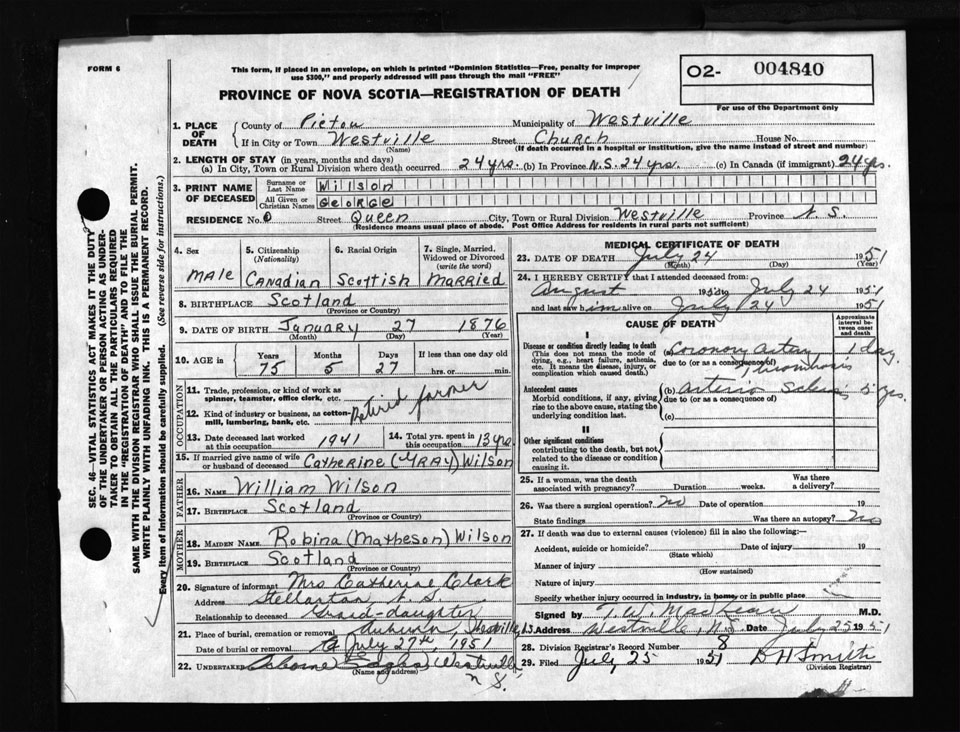 FORM 6
This form, if placed in an envelope, on which is printed "Dominion Statistics—Free, penalty for improper
use $300," and properly addressed will pass through the mail "FREE"
O2- 004840
For use of the Department only
PROVINCE OF NOVA SCOTIA—REGISTRATION OF DEATH
1. PLACE OF DEATH County of Pictou Municipality of Westville
If in City or Town Westville Street Church House No.
(Name) (If death occurred in a hospital or institution, give the name instead of street and number)
2. LENGTH OF STAY (in years, months and days)
(a) In City, Town or Rural Division where death occurred 24 yrs. (b) In Province N.S. 24 yrs. (c) In Canada (if immigrant) 24 yrs.
3. PRINT NAME OF DECEASED Surname or Last Name Wilson
All Given or Christian Names George
RESIDENCE No. 0 Street Queen City, Town or Rural Division Westville Province N.S.
(Residence means usual place of abode. Post Office Address for residents in rural parts not sufficient)
4. Sex Male
5. Citizenship (Nationality) Canadian
6. Racial Origin Scottish
7. Single, Married, Widowed or Divorced (write the word) Married
8. BIRTHPLACE Scotland
(Province or Country)
9. DATE OF BIRTH January 27 1876
(Month) (Day) (Year)
10. AGE in Years 75 Months 5 Days 27 If less than one day old hrs. or min.
OCCUPATION
11. Trade, profession, or kind of work as spinner, teamster, office clerk, etc.
12. Kind of industry or business, as cotton-mill, lumbering, bank, etc. Retired farmer
13. Date deceased last worked at this occupation 1941
14. Total yrs. spent in this occupation 13 yrs.
15. If married give name of wife or husband of deceased Catherine (Gray) Wilson
FATHER
16. NAME William Wilson
17. BIRTHPLACE Scotland
(Province or Country)
MOTHER
18. MAIDEN NAME Robina (Matheson) Wilson
19. BIRTHPLACE Scotland
(Province or Country)
20. Signature of informant Mrs Catherine Clark
Address Stellarton N.S.
Relationship to deceased Grand-daughter
21. Place of burial, cremation or removal Auburn, Westville, N.S.
Date of burial or removal July 27th, 1951
22. UNDERTAKER Westville N.S.
(Name and address)
MEDICAL CERTIFICATE OF DEATH
23. DATE OF DEATH July 24 1951
(Month) (Day) (Year)
24. I HEREBY CERTIFY that I attended deceased from:
August 19 to July 24 1951
and last saw him alive on July 24 1951
CAUSE OF DEATH
Approximate interval between onset and death
I
Disease or condition directly leading to death (a) Coronory Artery Thrombosis 1 day.
(This does not mean the mode of dying, e.g., heart failure, asthenia, etc. It means the disease, injury, or complication which caused death.)
due to (or as a consequence of)
Antecedent causes (b) Arterio Sclerosis 5 yrs.
Morbid conditions, if any, giving rise to the above cause, stating the underlying condition last.
due to (or as a consequence of)
(c)
II
Other significant conditions contributing to the death, but not related to the disease or condition causing it.
25. If a woman, was the death associated with pregnancy? Duration weeks. Was there a delivery?
26. Was there a surgical operation? No Date of operation 19
State findings Was there an autopsy? No
27. If death was due to external causes (violence) fill in also the following:—
Accident, suicide or homicide? Date of injury 19
(State which)
Manner of injury
(How sustained)
Nature of injury
Specify whether injury occurred in industry, in home, or in public place
Signed by T. W. MacLean M.D.
Address Westville, N.S. Date July 25 1951
28. Division Registrar's Record Number 8
29. Filed July 25 1951 D H Smith
(Division Registrar)
SEC. 46—VITAL STATISTICS ACT MAKES IT THE DUTY
OF THE UNDERTAKER OR PERSON ACTING AS UNDER-
TAKER TO OBTAIN ALL THE PARTICULARS REQUIRED
IN THE "REGISTRATION OF DEATH" AND TO FILE THE
SAME WITH THE DIVISION REGISTRAR WHO SHALL ISSUE THE BURIAL PERMIT.
WRITE PLAINLY WITH UNFADING INK. THIS IS A PERMANENT RECORD.
Every item of information should be carefully supplied. (See reverse side for instructions.)